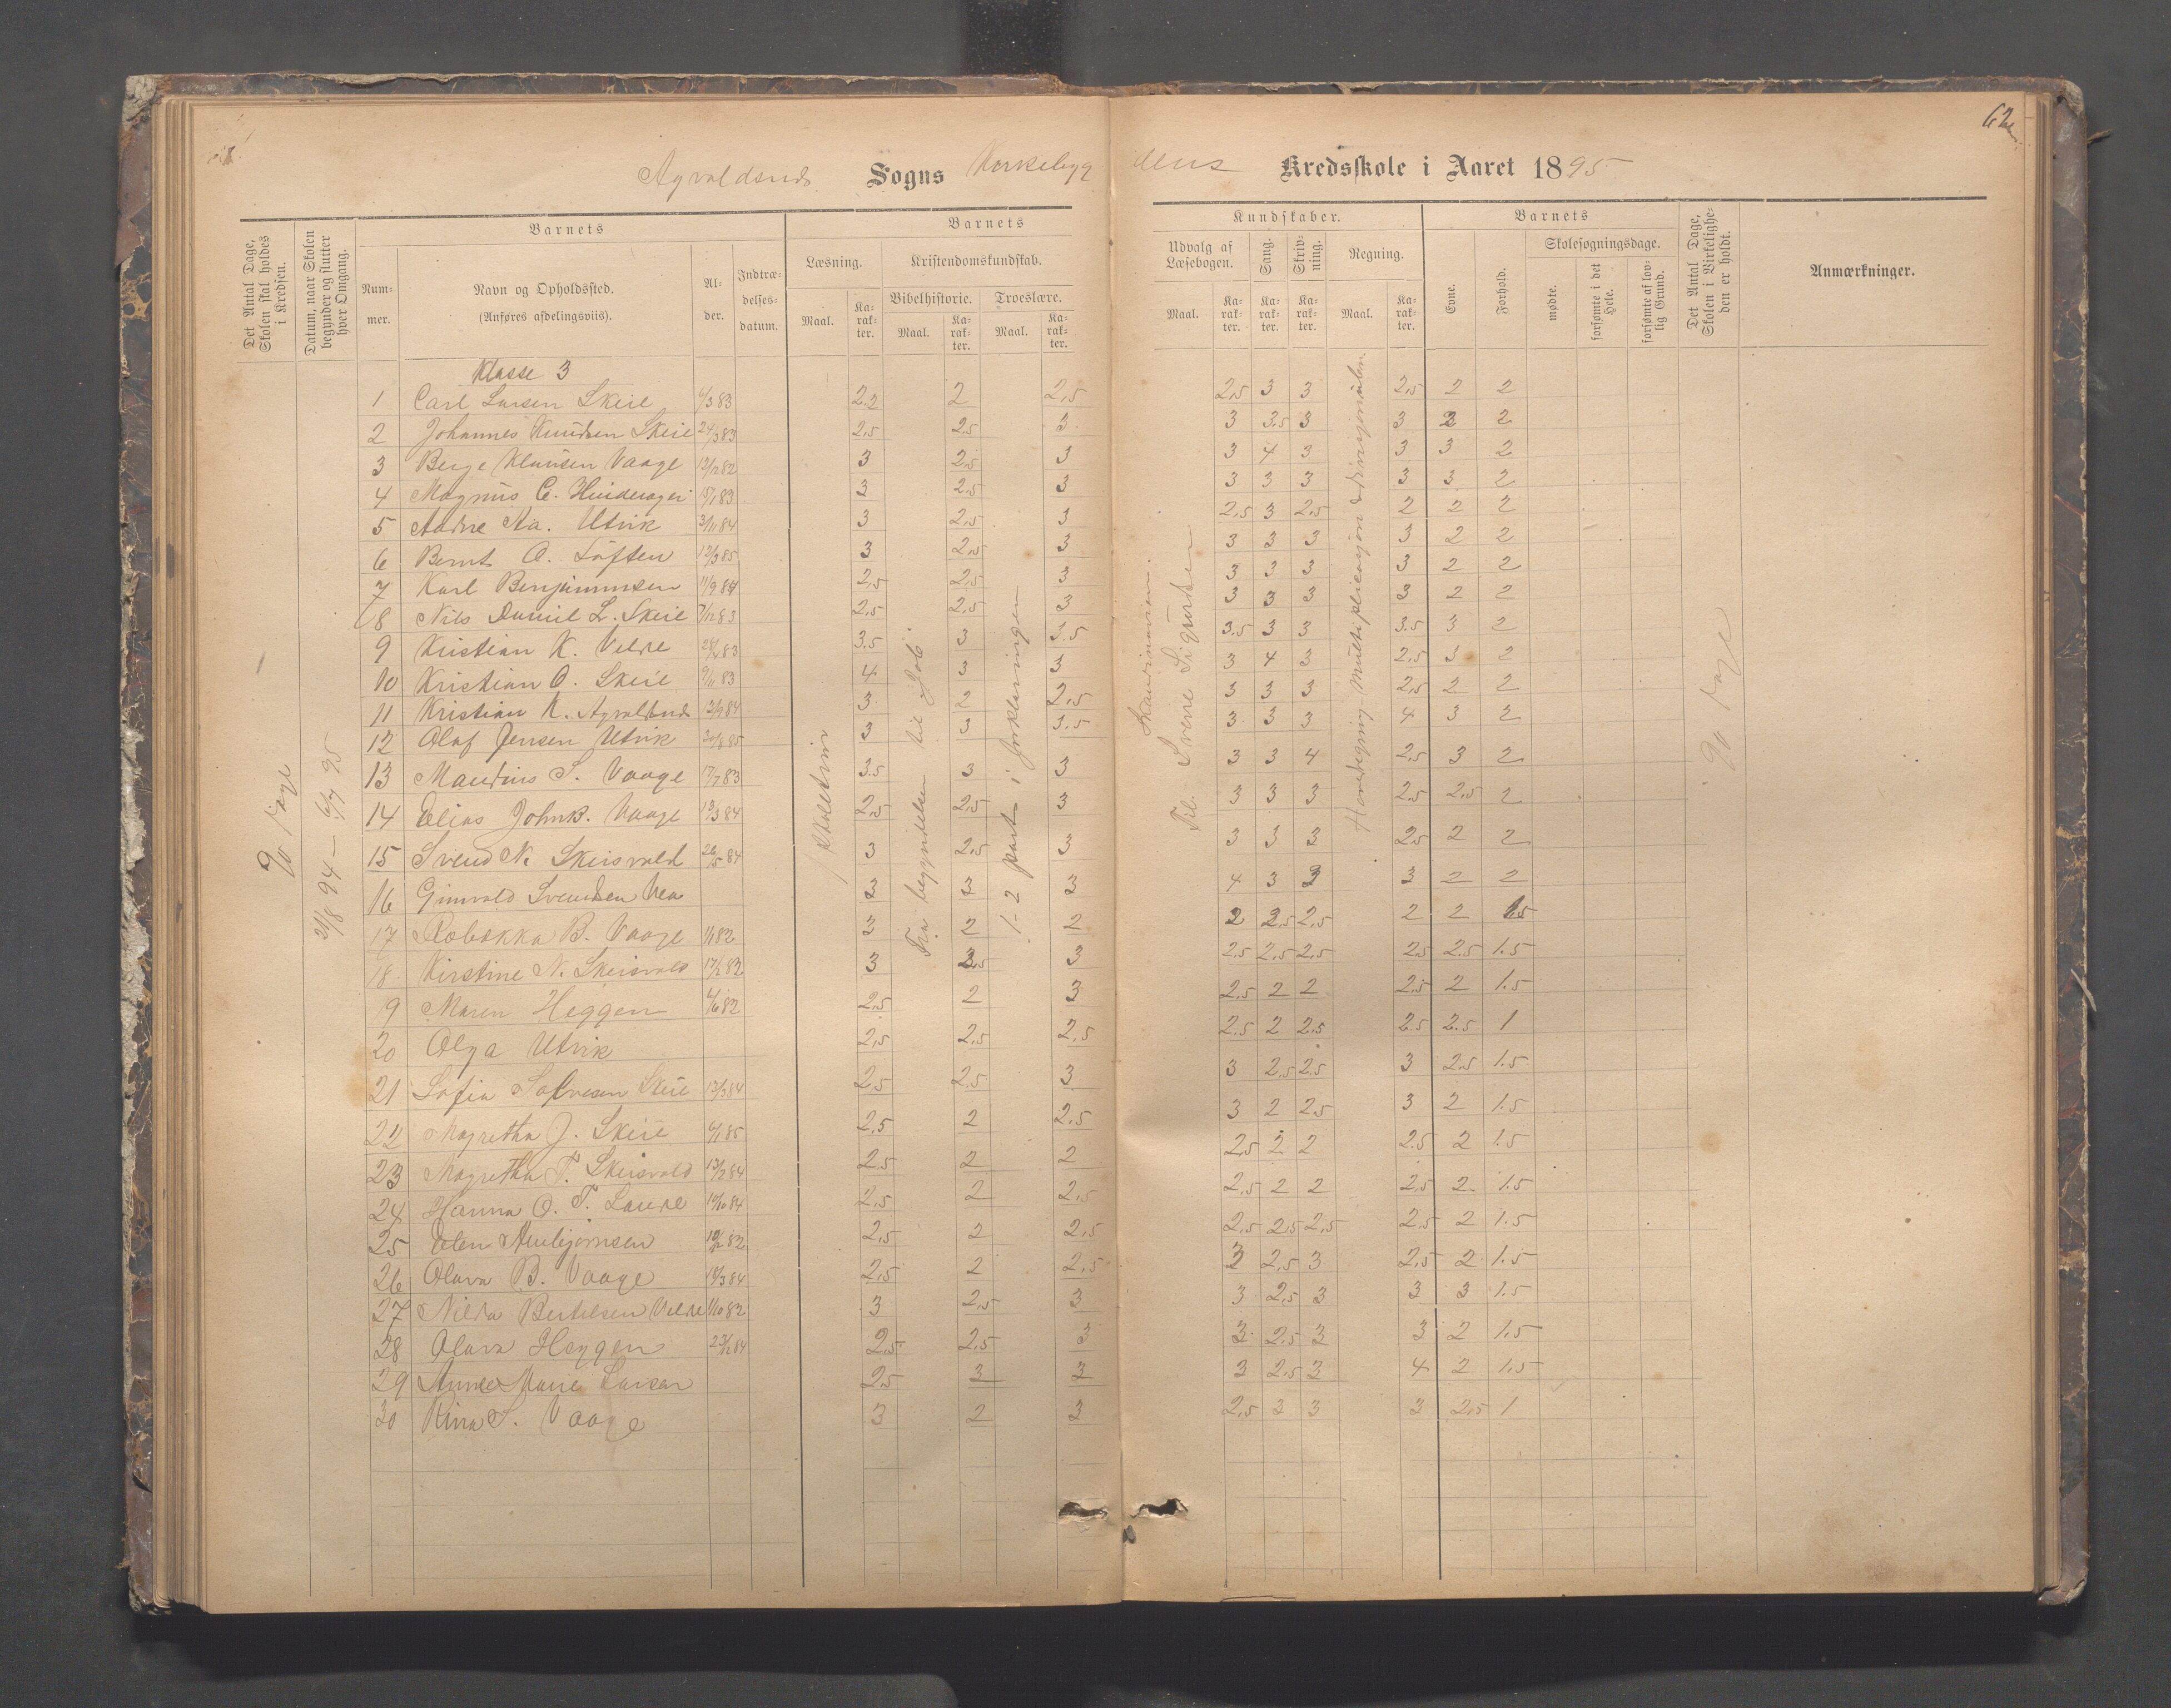 62
Agvaldsnds Sogns Kirkebygdens Kredsskole i Aaret 1895
Det Antal Dage, Skolen skal holdes i Kredsen.
Datum, naar Skolen begynder og slutter hver Omgang.
Barnets
Nummer.
Navn og Opholdssted.
(Anføres afdelingsviis).
Alder.
Indtrædelsesdatum.
Barnets
Læsning.
Kristendomskundskab.
Bibelhistorie. Troeslære.
Maal. Karakter. Maal. Karakter. Maal. Karakter.
Kundskaber.
Udvalg af Læsebogen.
Sang.
Skrivning.
Regning.
Maal. Karakter. Karakter. Karakter. Maal. Karakter.
Barnets
Evne.
Forhold.
Skolesøgningsdage.
mødte.
forsømte i det Hele.
forsømte af lovlig Grund.
Det Antal Dage, Skolen i Virkeligheden er holdt.
Anmærkninger.
90 Dage
21/8 94 – 6/7 95
Fra begyndelsen til Job
1-2 part i forklaringen
Til Sverre Sigurdsen
90 Dage
Klasse 3
1 Carl Larsen Skeie 6/3 83 2.2 2 2,5 2,5 3 3 2,5 2 2
2 Johannes Knudsen Skeie 24/3 83 2,5 2.5 3 3 3.5 3 3 3 2
3 Berge Klausen Vaage 13/12 82 3 2,5 3 3 4 3 3 3 2
4 Magnus C. 15/1 83 3 2,5 3 3 3 3 3 3 2
5 Aa. Utvik 3/11 84 3 2,5 3 2,5 3 2,5 2 2 2
6 Bernt O. Toften 12/3 85 3 2,5 3 3 3 3 3 2 2
7 Karl Benjaminsen 11/9 84 2,5 2,5 3 3 3 3 3 2 2
8 Nils Daniel L. Skeie 7/12 83 2,5 2,5 3 3 3 3 3 2 2
9 Kristian K. Velde 28/2 83 3.5 3 3.5 3.5 3 3 3.5 3 2
10 Kristian O. Skeie 9/11 83 4 3 3 3 4 3 2,5 3 2
11 Kristian K. Agvaldsnds 12/9 84 3 2 2,5 3 3 3 2,5 2 2
12 Olaf Jensen Utvik 30/8 85 3 3 3.5 3 3 3 4 3 2
13 Maudius S. Vaage 17/7 83 3.5 3 3 3 3 4 2,5 3 2
14 Elias Johns. Vaage 13/3 84 2,5 2,5 3 3 3 3 2,5 2,5 2
15 Svend N. Skeisvold 26/5 84 3 2,5 3 3 3 3 2,5 2 2
16 Gunvald Svendsen Vea 3 3 3 4 3 3 3 2 2
17 Rebekka B. Vaage 1/1 82 3 2 2 2 2.5 2,5 2 2 1.5
18 Kirstine N. Skeisvold 17/2 82 3 2.5 3 2.5 2,5 2,5 2,5 2.5 1.5
19 Maren Heggen 4/6 82 2,5 2 3 2,5 2 2 2,5 2 1.5
20 Olga Utvik 2,5 2,5 2,5 2.5 2 2.5 2.5 2.5 1
21 Sofia Salvesen Skeie 13/3 84 2,5 2,5 3 3 2.5 2.5 3 2.5 1.5
22 Magretha J. Skeie 6/1 85 2,5 2 2,5 3 2 2,5 3 2 1.5
23 Magretha T. Skeisvold 13/2 84 2.5 2 2 2,5 2 2 2.5 2 1.5
24 Hanna O. T. Lande 10/10 84 2,5 2 2,5 2,5 2 2 2,5 2 1.5
25 2,5 2 2,5 2,5 2,5 2,5 2,5 2 1.5
26 Olava B. Vaage 18/3 84 2,5 2 2,5 3 2,5 3 2,5 2 1.5
27 Nilda Bertelsen Velde 1/10 82 3 2,5 3 3 2,5 3 3 3 1.5
28 Olava Heggen 23/12 84 2,5 2,5 3 3 2,5 3 3 2 1,5
29 Anne Marie Larsen 2,5 3 3 3 2,5 3 4 2 1,5
30 Kina S. Vaage 3 2 3 2,5 3 3 3 2,5 1